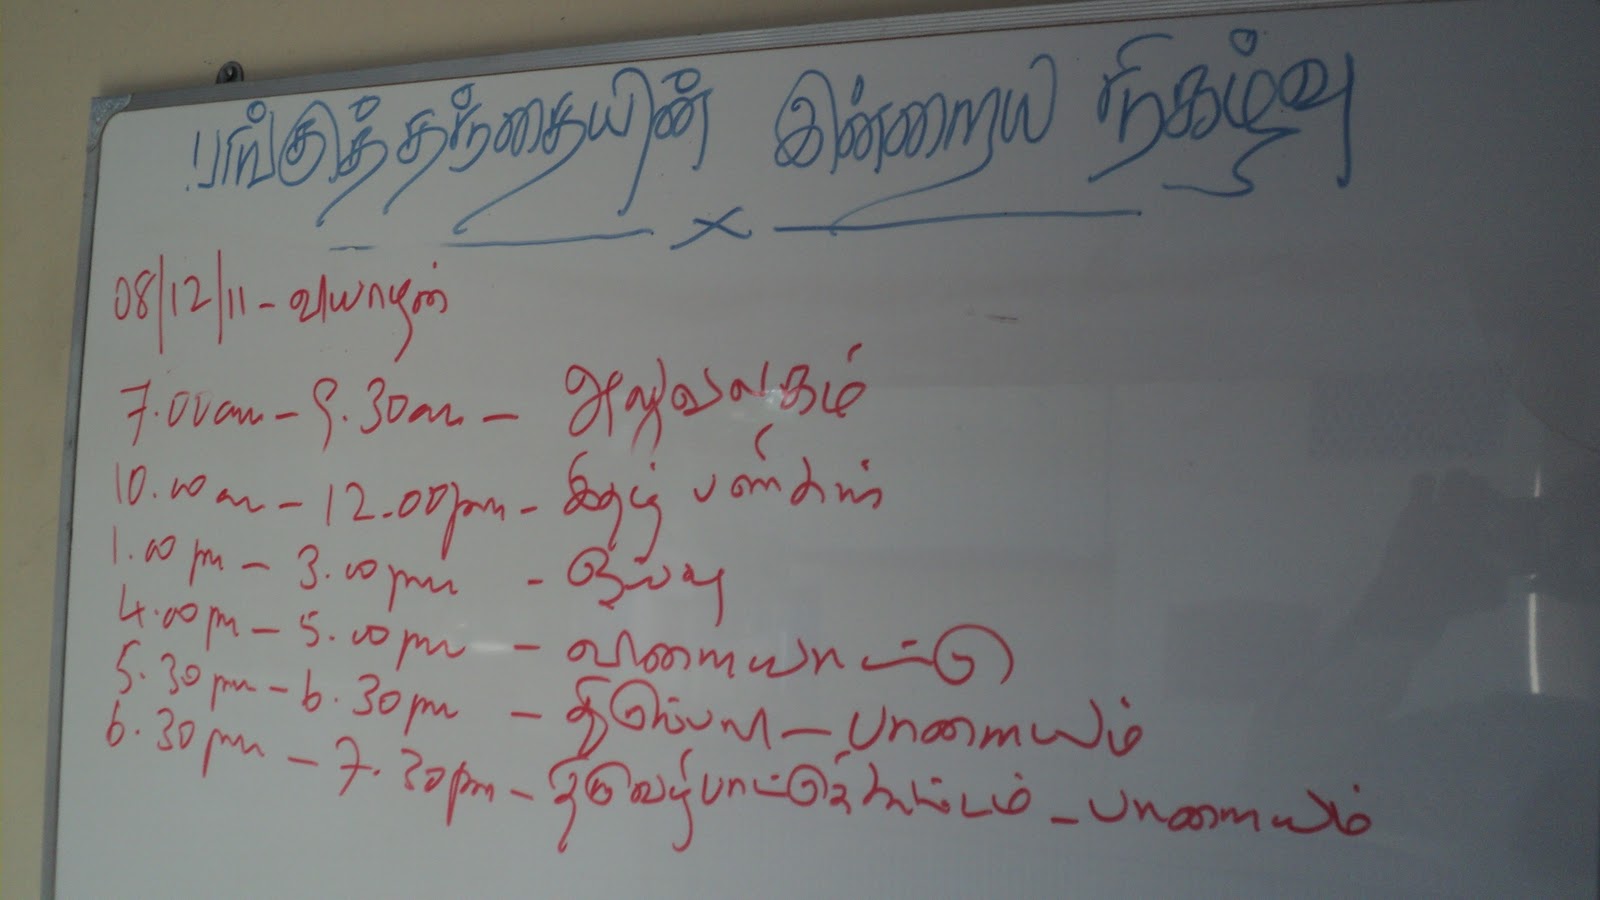 பங்குத்தந்தையின் இன்றைய நிகழ்வு
08/12/11 - வியாழன்
7.00am - 9.30am - அலுவலகம்
10.00am - 12.00pm - இதழ் பணிகள்
1.00pm - 3.00pm - ஓய்வு
4.00pm - 5.00pm - விளையாட்டு
5.30pm - 6.30pm - திருப்பலி - பாளையம்
6.30pm - 7.30pm - திருவழிபாட்டுக்கூட்டம் - பாளையம்